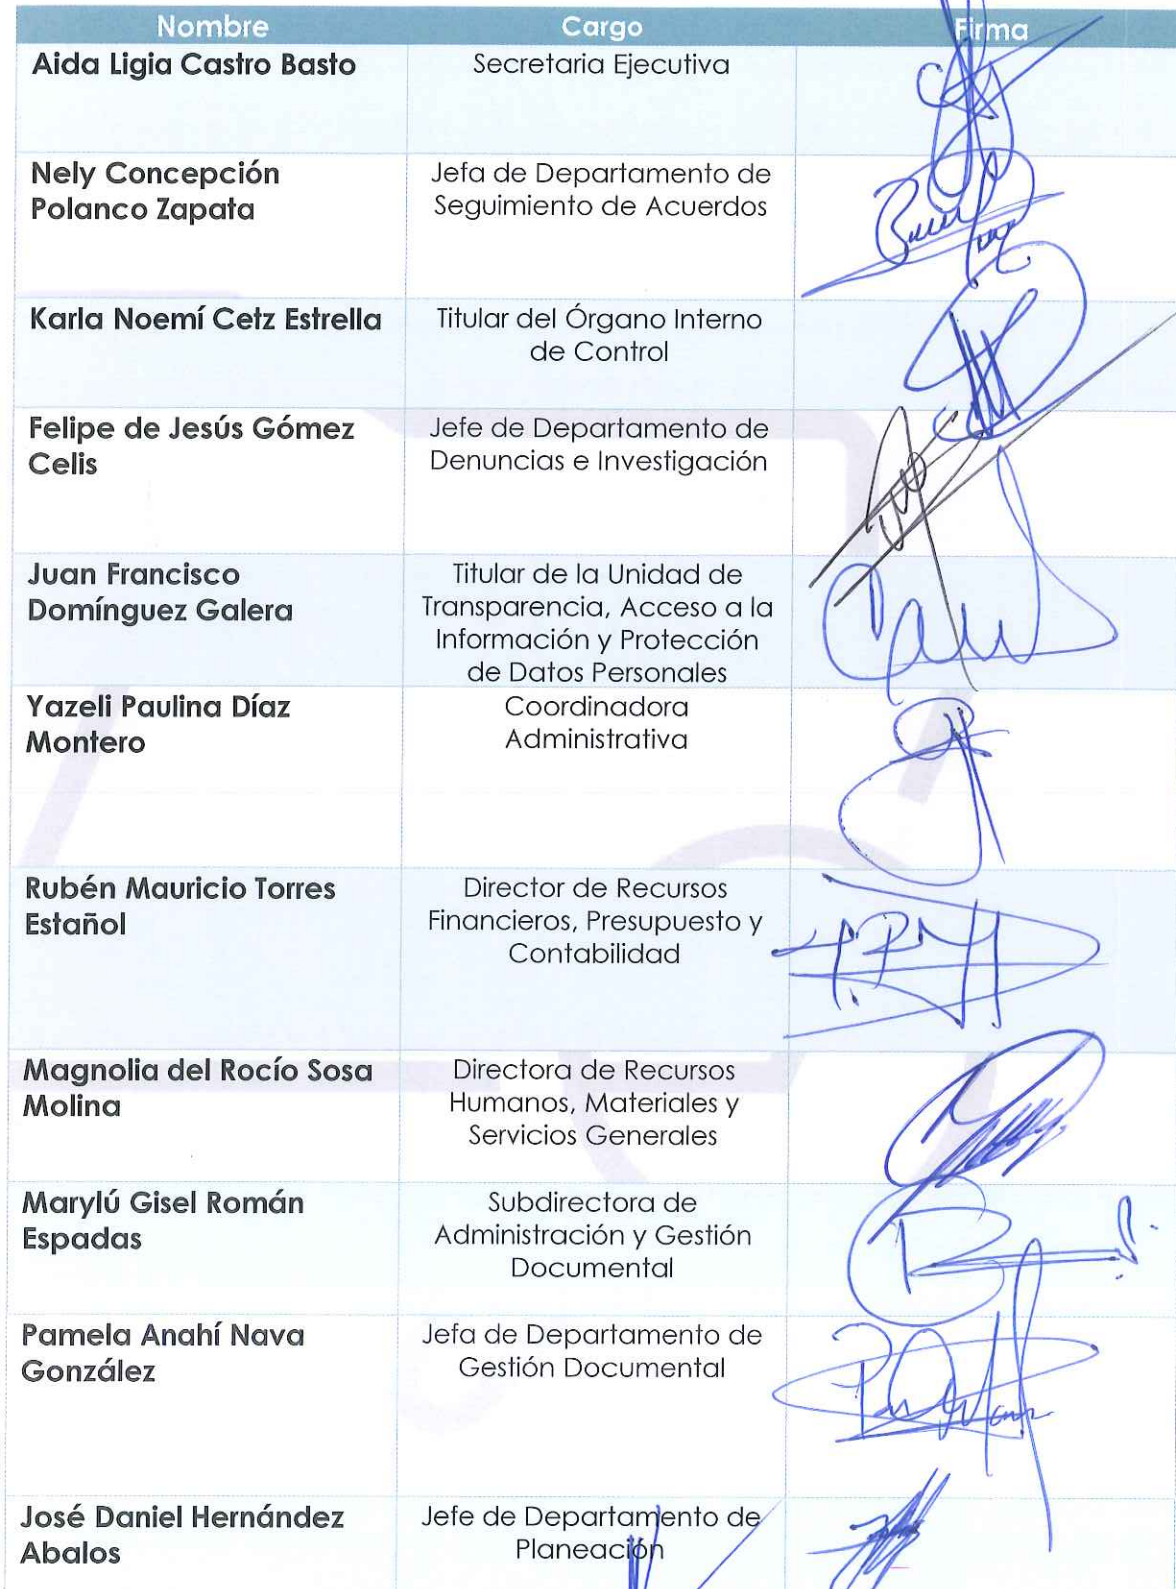 Nombre Cargo Firma
Aida Ligia Castro Basto Secretaria Ejecutiva
Nely Concepción Jefa de Departamento de
Polanco Zapata Seguimiento de Acuerdos
Karla Noemí Cetz Estrella Titular del Órgano Interno
de Control
Felipe de Jesús Gómez Jefe de Departamento de
Celis Denuncias e Investigación
Juan Francisco Titular de la Unidad de
Domínguez Galera Transparencia, Acceso a la
Información y Protección
de Datos Personales
Yazeli Paulina Díaz Coordinadora
Montero Administrativa
Rubén Mauricio Torres Director de Recursos
Estañol Financieros, Presupuesto y
Contabilidad
Magnolia del Rocío Sosa Directora de Recursos
Molina Humanos, Materiales y
Servicios Generales
Marylú Gisel Román Subdirectora de
Espadas Administración y Gestión
Documental
Pamela Anahí Nava Jefa de Departamento de
González Gestión Documental
José Daniel Hernández Jefe de Departamento de
Abalos Planeación